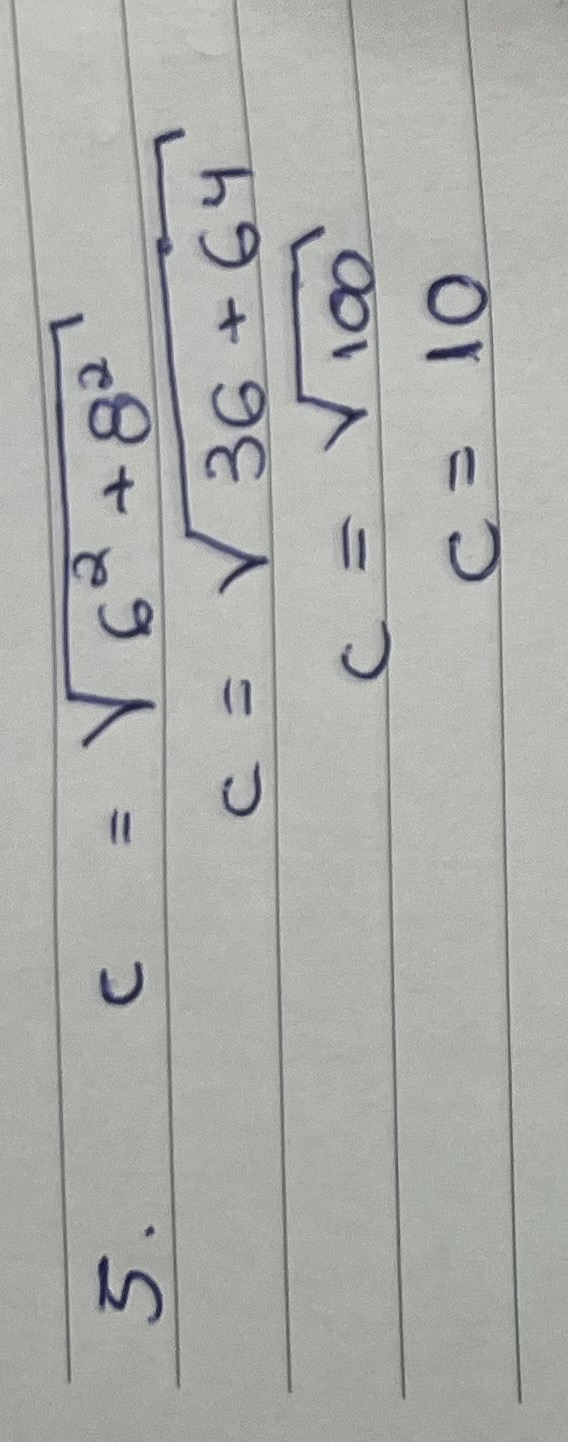 5. c = √6² + 8²
c = √36 + 64
c = √100
c = 10